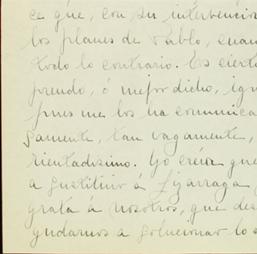 ce que, con su intervención
los planes de Pablo, cuan
todo lo contrario. Es cierto
prendo, ó mejor dicho, ign
pues me los ha comunica
gamente, tan vagamente,
rientadísimo. Yo creía que
a sustituir a Lizarraga
grata á nosotros, que des
yudarnos a solucionar lo s